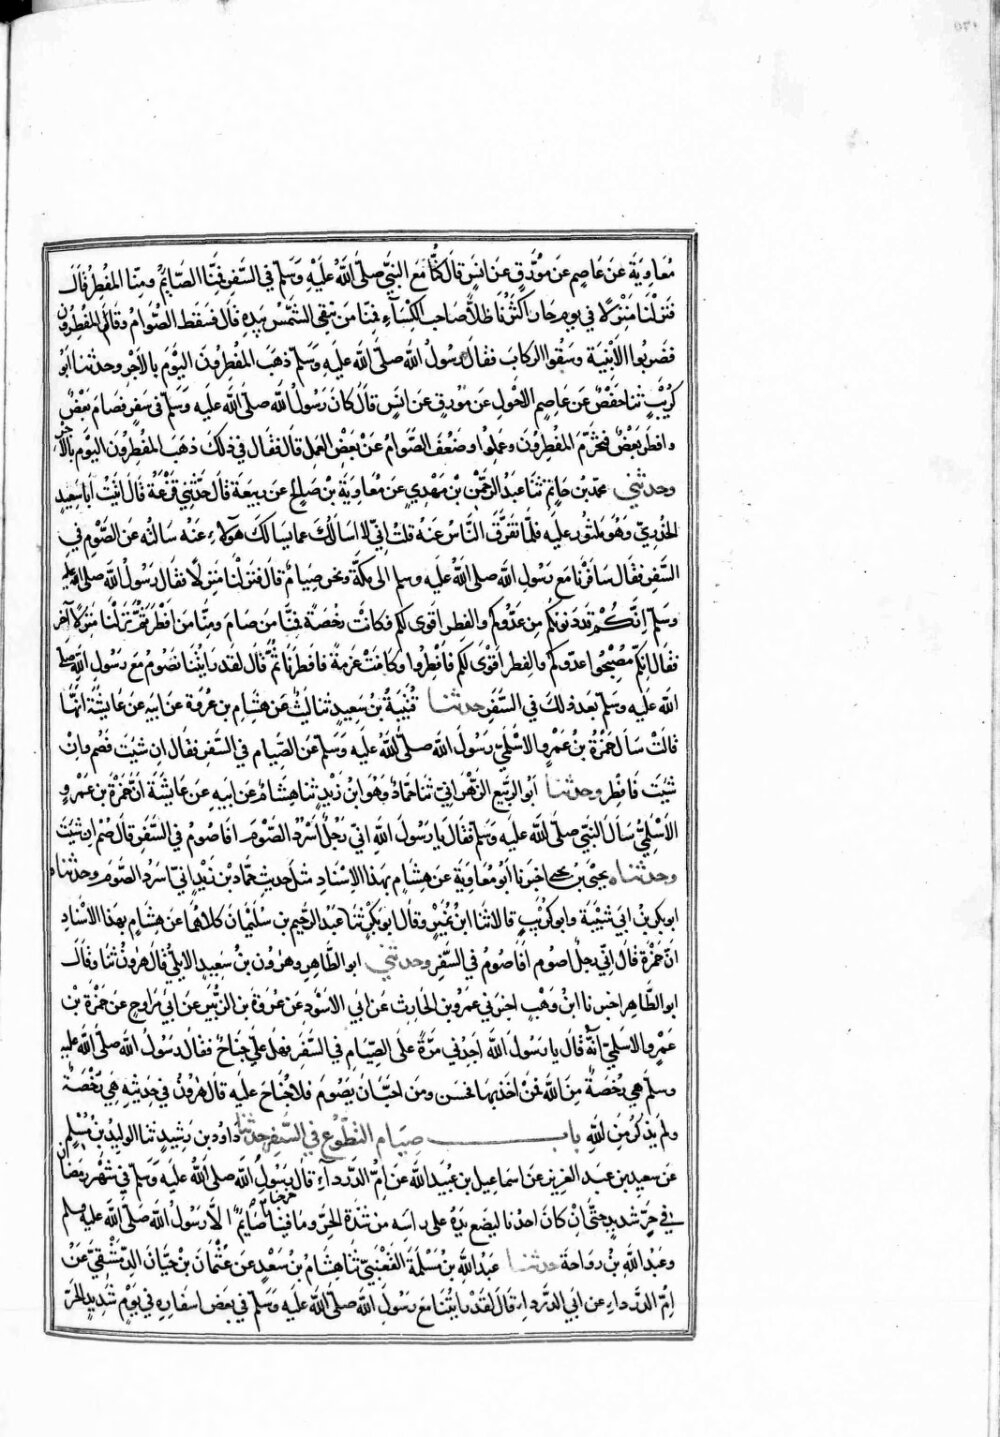 معاوية عن عاصم عن مورق عن انس قال كنا مع النبي صلى الله عليه وسلم في السفر فمنا الصايم ومنا المفطر قال
فنزلنا منزلا في يوم حار اكثرنا ظلا صاحب الكساء فمنا من يتقي الشمس بيده قال فسقط الصوام وقام المفطرون
فضربوا الابنية وسقوا الركاب فقال رسول الله صلى الله عليه وسلم ذهب المفطرون اليوم بالاجر وحدثنا ابو
كريب ثنا حفص عن عاصم الاحول عن مورق عن انس قال كان رسول الله صلى الله عليه وسلم في سفر فصام بعض
وافطر بعض فتحزم المفطرون وعملوا وضعف الصوام عن بعض العمل قال فقال في ذلك ذهب المفطرون اليوم بالاجر
وحدثني محمد بن حاتم ثنا عبد الرحمن بن مهدي عن معاوية بن صالح عن ربيعة قال حدثني قزعة قال اتيت ابا سعيد
الخدري وهو مكثور عليه فلما تفرق الناس عنه قلت اني لا اسالك عما يسالك هولاء عنه سالته عن الصوم في
السفر فقال سافرنا مع رسول الله صلى الله عليه وسلم الى مكة ونحن صيام قال فنزلنا منزلا فقال رسول الله صلى الله عليه
وسلم انكم قد دنوتم من عدوكم والفطر اقوى لكم فكانت رخصة فمنا من صام ومنا من افطر ثم نزلنا منزلا آخر
فقال انكم مصبحوا عدوكم والفطر اقوى لكم فافطروا وكانت عزمة فافطرنا ثم قال لقد رايتنا نصوم مع رسول الله صلى
الله عليه وسلم بعد ذلك في السفر حدثنا قتيبة بن سعيد ثنا ليث عن هشام بن عروة عن ابيه عن عايشة انها
قالت سال حمزة بن عمرو الاسلمي رسول الله صلى الله عليه وسلم عن الصيام في السفر فقال ان شيت فصم وان
شيت فافطر وحدثنا ابو الربيع الزهراني ثنا حماد وهو ابن زيد ثنا هشام عن ابيه عن عايشة ان حمزة بن عمرو
الاسلمي سال النبي صلى الله عليه وسلم فقال يا رسول الله اني رجل اسرد الصوم افاصوم في السفر قال صم ان شيت
وحدثناه يحيى بن يحيى اخبرنا ابو معاوية عن هشام بهذا الاسناد مثل حديث حماد بن زيد اني اسرد الصوم وحدثناه
ابو بكر بن ابي شيبة وابو كريب قالا ثنا ابن نمير وقال ابو بكر ثنا عبد الرحيم بن سليمان كلاهما عن هشام بهذا الاسناد
ان حمزة قال اني رجل اصوم افاصوم في السفر وحدثني ابو الطاهر وهرون بن سعيد الايلي قال هرون ثنا وقال
ابو الطاهر اخبرنا ابن وهب اخبرني عمرو بن الحارث عن ابي الاسود عن عروة بن الزبير عن ابي مراوح عن حمزة بن
عمرو الاسلمي انه قال يا رسول الله اجد بي قوة على الصيام في السفر فهل علي جناح فقال رسول الله صلى الله عليه
وسلم هي رخصة من الله فمن اخذ بها فحسن ومن احب ان يصوم فلا جناح عليه قال هرون في حديثه هي رخصة
ولم يذكر من الله باب صيام التطوع في السفر حدثنا داود بن رشيد ثنا الوليد بن مسلم
عن سعيد بن عبد العزيز عن اسماعيل بن عبيد الله عن ام الدرداء قال رسول الله صلى الله عليه وسلم في شهر رمضان
في حر شديد حتى ان كان احدنا ليضع يده على راسه من شدة الحر وما فينا صايم الا رسول الله صلى الله عليه وسلم
وعبد الله بن رواحة حدثنا عبد الله بن مسلمة القعنبي ثنا هشام بن سعد عن عثمان بن حيان الدمشقي عن
ام الدرداء عن ابي الدرداء قال لقد رايتنا مع رسول الله صلى الله عليه وسلم في بعض اسفاره في يوم شديد الحر